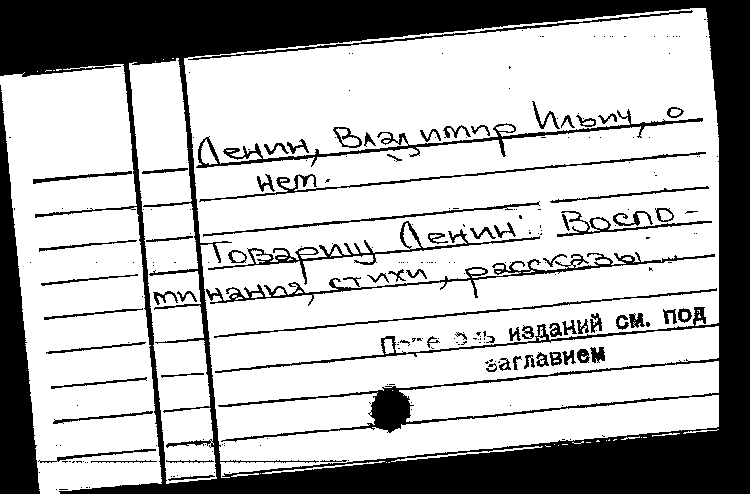 Ленин, Владимир Ильич, о
нем.
Товарищ Ленин: Воспо-
минания, стихи, рассказы ...
Перечень изданий см. под
заглавием